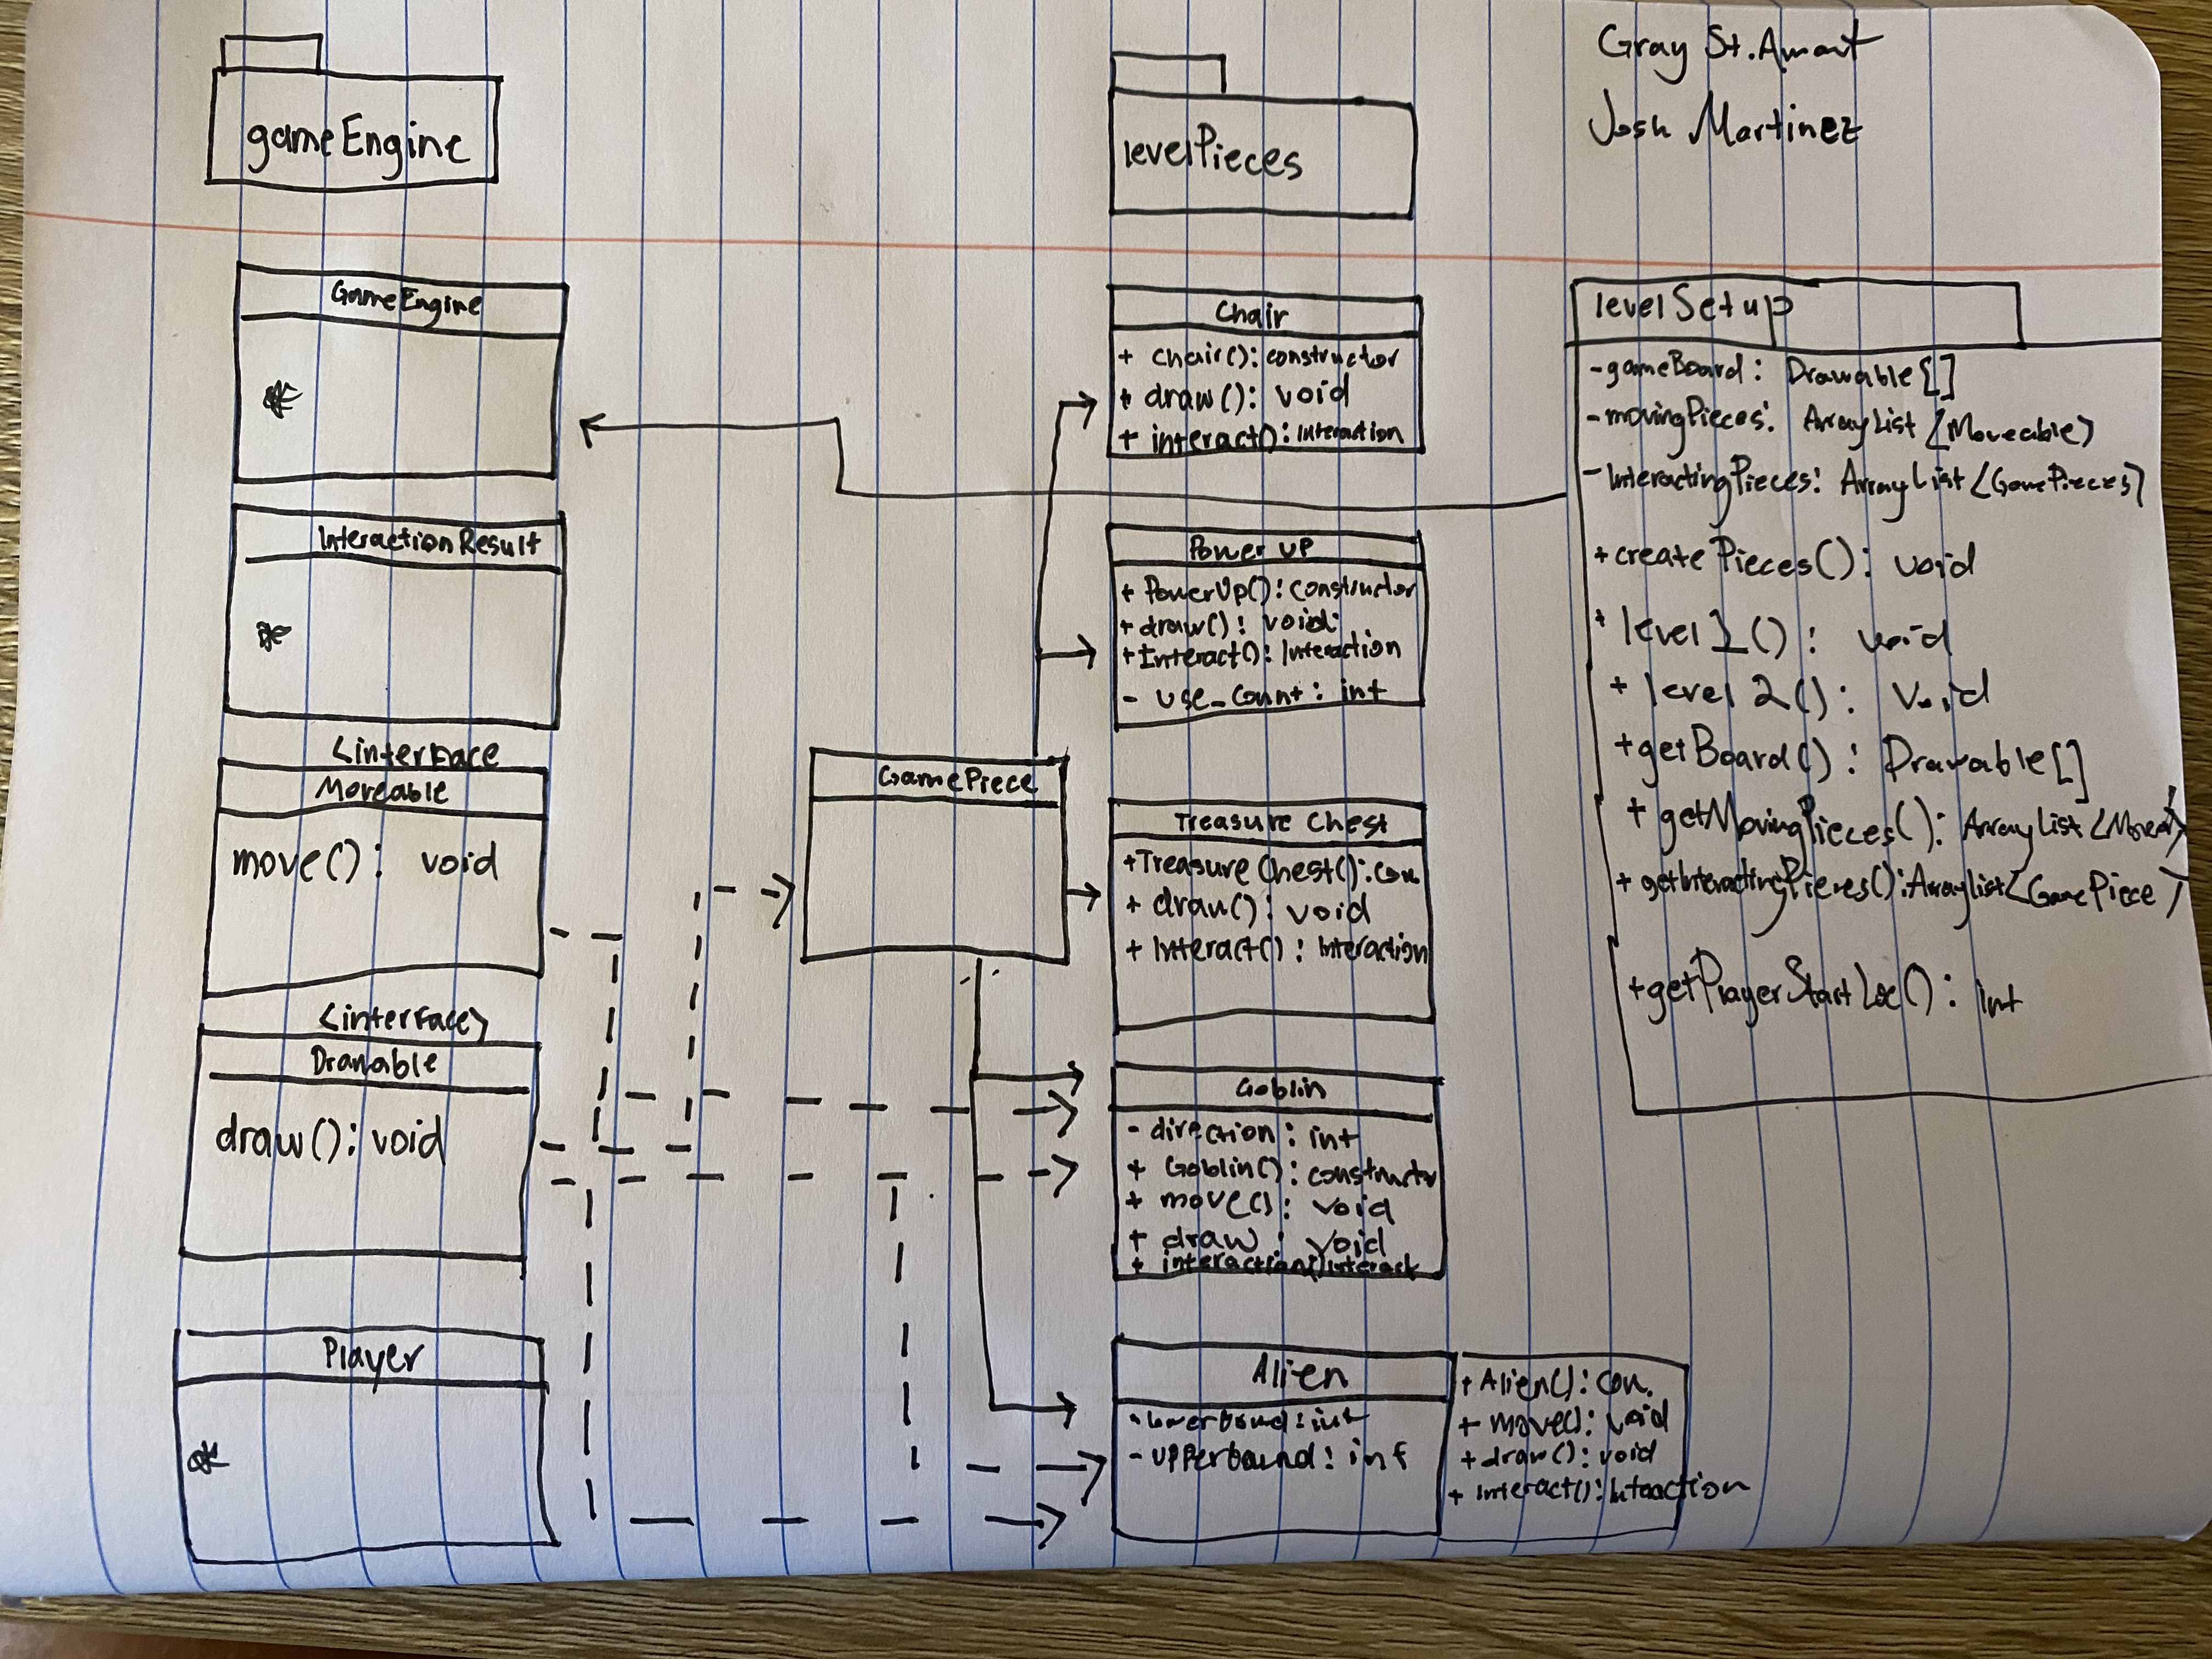 Gray St. Amant
Josh Martinez
gameEngine
GameEngine
*
InteractionResult
*
<interface
Moveable
move(): void
<interface>
Drawable
draw(): void
Player
*
GamePiece
levelPieces
Chair
+ chair(): constructor
+ draw(): void
+ interact(): interaction
Power up
+ PowerUp(): constructor
+ draw(): void:
+ Interact(): Interaction
- use_count: int
Treasure chest
+Treasure Chest(): con.
+ draw(): void
+ Interact(): Interaction
Goblin
- direction: int
+ Goblin(): constructor
+ move(): void
+ draw: void
+ interaction/Interact
Alien
- lowerbound: int
- upperbound: int
+ Alien(): con.
+ move(): void
+ draw(): void
+ Interact(): Intraction
levelSetup
-gameBoard: Drawable[]
-movingPieces: ArrayList<Moveable>
-InteractingPieces: ArrayList<GamePieces>
+createPieces(): void
+ level 1(): void
+ level 2(): void
+getBoard(): Drawable[]
+ getMovingPieces(): ArrayList<Movea>
+ getInteractingPieces(): ArrayList<GamePiece>
+getPlayerStartLoc(): int